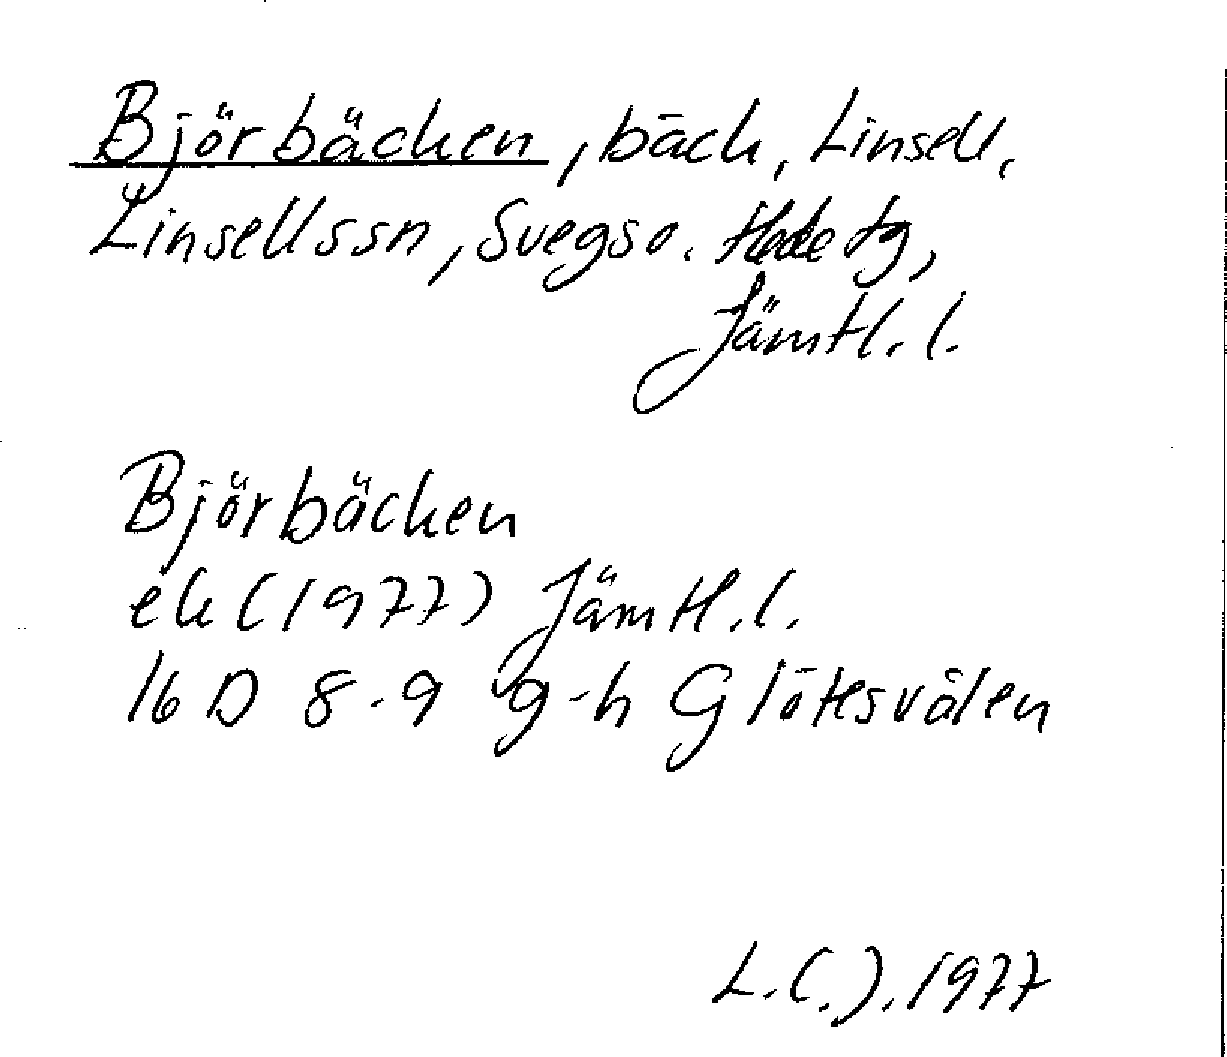 Björbäcken, bäck, Linsell,
Linsells sn, Svegs o. Hede tg,
Jämtl. l.
Björbäcken
ek (1977) Jämtl. l.
16 D 8-9 g-h Glötesvålen
L.(.). 1977